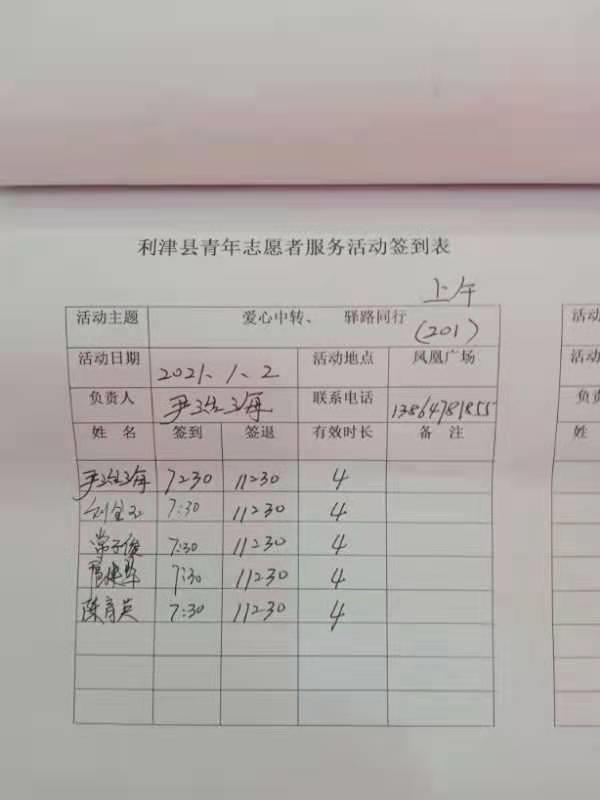 利津县青年志愿者服务活动签到表
上午
活动主题 爱心中转、 驿路同行 (201)
活动日期 2021、1、2 活动地点 凤凰广场
负责人 联系电话 13864781855
姓 名 签到 签退 有效时长 备 注
7:30 11:30 4
7:30 11:30 4
常子俊 7:30 11:30 4
7:30 11:30 4
陈育英 7:30 11:30 4
活动
活动
负责
姓